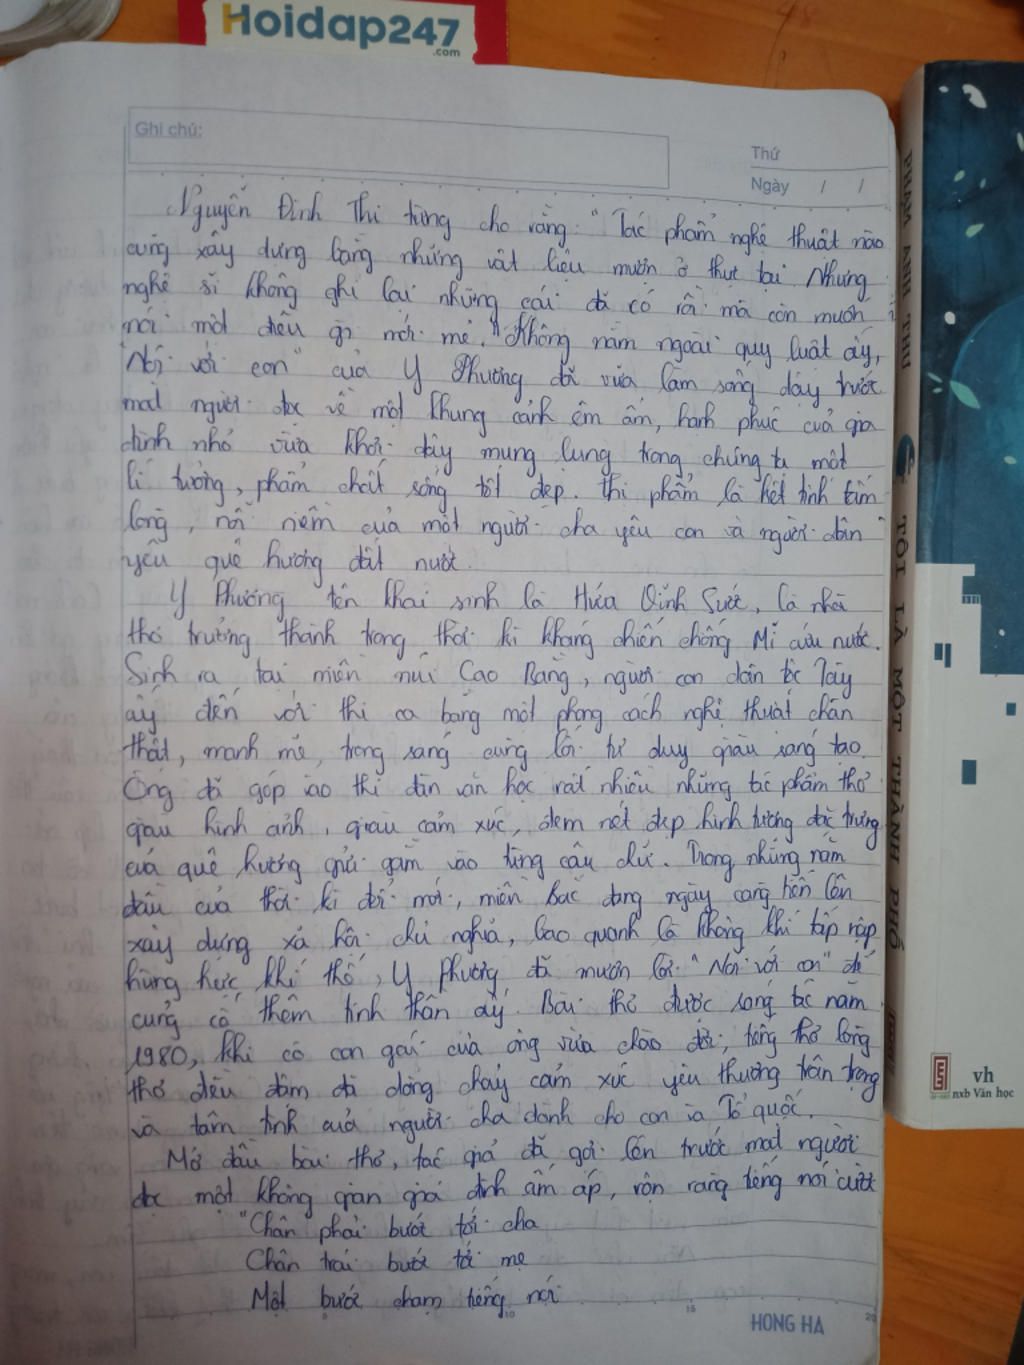 Hoidap247
.com
Ghi chú:
Thứ
Ngày / /
Nguyễn Đình Thi từng cho rằng: "Tác phẩm nghệ thuật nào
cũng xây dựng bằng những vật liệu mượn ở thực tại. Nhưng
nghệ sĩ không ghi lại những cái đã có rồi mà còn muốn
nói một điều gì mới mẻ." Không nằm ngoài quy luật ấy,
"Nói với con" của Y Phương đã vừa làm sống dậy trước
mắt người đọc về một khung cảnh êm ấm, hạnh phúc của gia
đình nhỏ vừa khơi dậy mung lung trong chúng ta một
lí tưởng, phẩm chất sống tốt đẹp. Thi phẩm là kết tinh tấm
lòng, nỗi niềm của một người cha yêu con và người dân
yêu quê hương đất nước.
Y Phương tên khai sinh là Hứa Vĩnh Sước, là nhà
thơ trưởng thành trong thời kì kháng chiến chống Mĩ cứu nước.
Sinh ra tại miền núi Cao Bằng, người con dân tộc Tày
ấy đến với thi ca bằng một phong cách nghệ thuật chân
thật, mạnh mẽ, trong sáng cùng lối tư duy giàu sáng tạo.
Ông đã góp vào thi đàn văn học rất nhiều những tác phẩm thơ
giàu hình ảnh, giàu cảm xúc, đem nét đẹp hình tượng đặc trưng
của quê hương gửi gắm vào từng câu chữ. Trong những năm
đầu của thời kì đổi mới, miền Bắc đang ngày càng tiến lên
xây dựng xã hội chủ nghĩa, bao quanh là không khí tấp nập
hừng hực khí thế, Y Phương đã mượn lời "Nói với con" để
củng cố thêm tinh thần ấy. Bài thơ được sáng tác năm
1980, khi cô con gái của ông vừa chào đời, từng thớ lòng
thơ đều đậm đà dòng chảy cảm xúc yêu thương trân trọng
và tâm tình của người cha dành cho con và Tổ quốc.
Mở đầu bài thơ, tác giả đã gợi lên trước mắt người
đọc một không gian gia đình ấm áp, rộn ràng tiếng nói cười
"Chân phải bước tới cha
Chân trái bước tới mẹ
Một bước chạm tiếng nói
5 10 15 20
HONG HA
PHẠM ANH THƯ
TÔI LÀ MỘT THÀNH PHỐ
vh
nxb Văn học